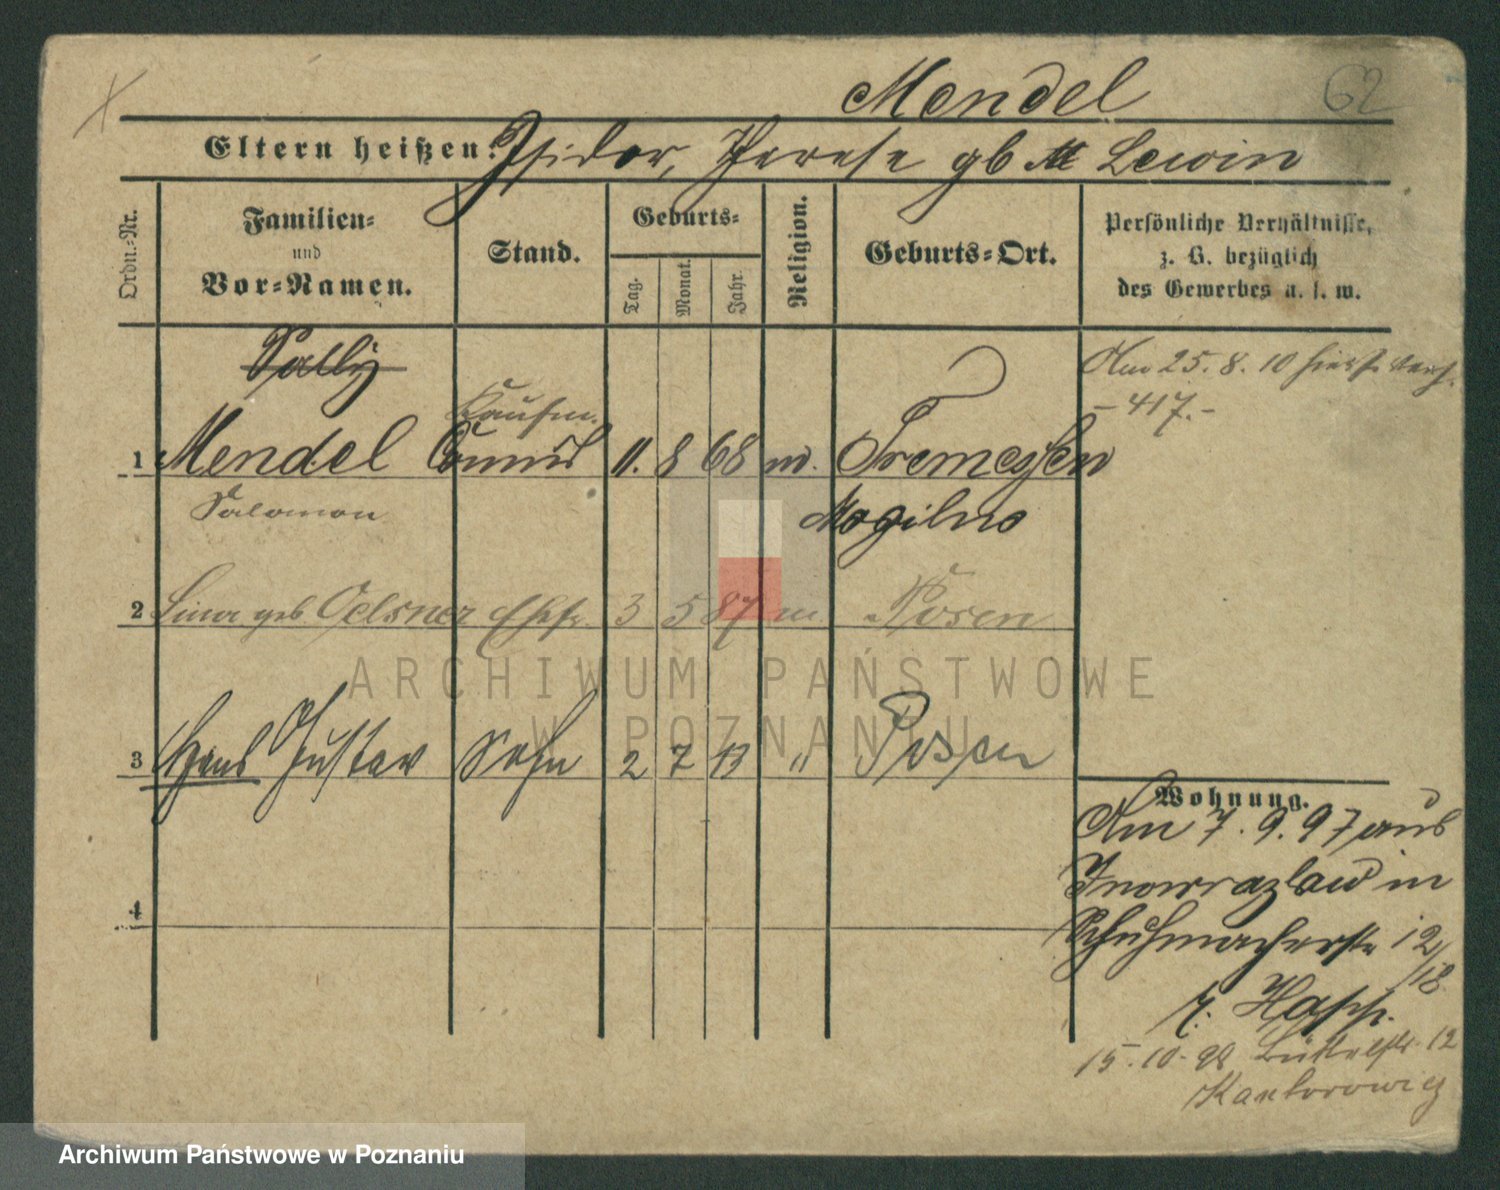 Mendel 62
Eltern heißen: Isidor, Therese gb Lewin
Ordn.-Nr.
Familien-
und
Vor-Namen.
Stand.
Geburts-
Tag.
Monat.
Jahr.
Religion.
Geburts-Ort.
Persönliche Verhältnisse,
z. B. bezüglich
des Gewerbes u. s. w.
Sally
Kaufm.
1 Mendel Commis 11. 8 68 m. Tremessen
Salomon
Mogilno
Am 25. 8. 10
- 417. -
2 Lina geb Oelsner Ehefr. 3 5 87 m Posen
3 Hans Gustav Sohn 2 7 13 " Posen
4
Wohnung.
Am 7. 9. 97 aus
Inowrazlaw in
Schuhmacherstr 12/18
15. 10. 98 12
Kantorowicz
ARCHIWUM PAŃSTWOWE
W POZNANIU
Archiwum Państwowe w Poznaniu